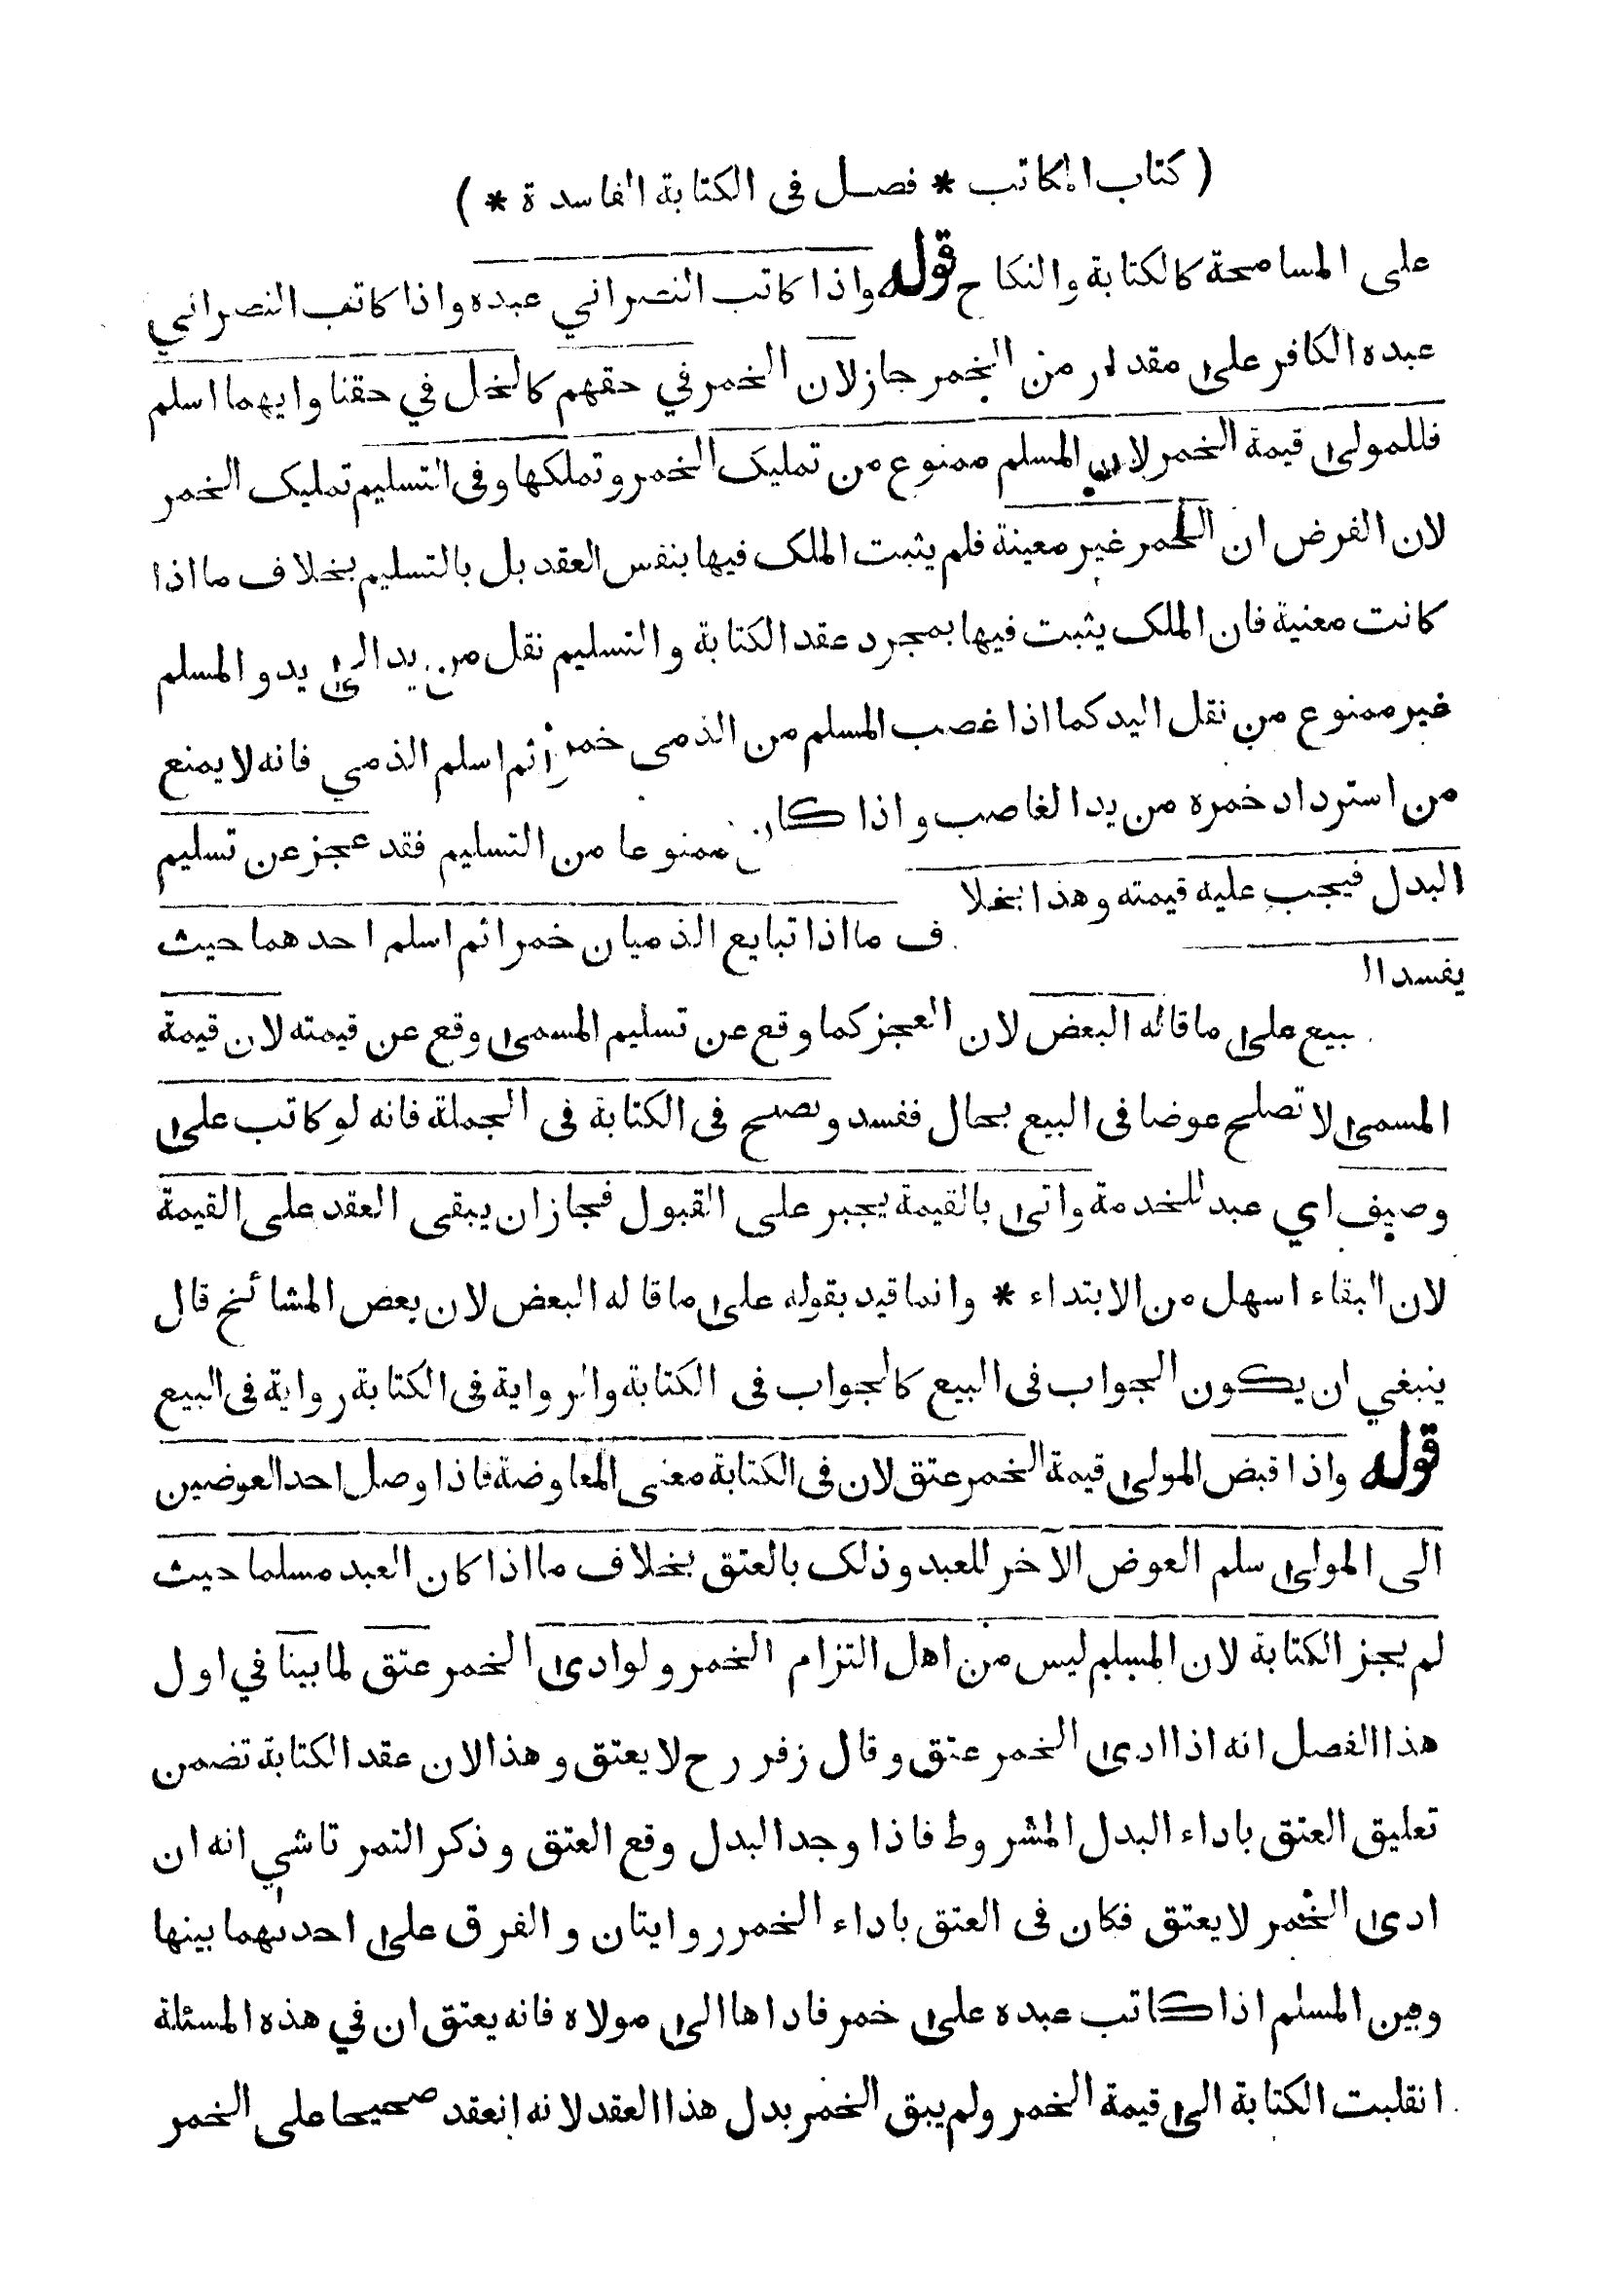 ( كتاب المكاتب * فصل فى الكتابة الفاسدة * )
على المسامحة كالكتابة والنكاح قوله واذا كاتب النصراني عبده واذا كاتب النصراني
عبده الكافر على مقدار من الخمر جاز لان الخمر في حقهم كالخل في حقنا وايهما اسلم
فللمولى قيمة الخمر لان المسلم ممنوع من تمليك الخمر وتملكها وفى التسليم تمليك الخمر
لان الفرض ان الخمر غير معينة فلم يثبت الملك فيها بنفس العقد بل بالتسليم بخلاف ما اذا
كانت معنية فان الملك يثبت فيها بمجرد عقد الكتابة والتسليم نقل من يد الى يد و المسلم
غير ممنوع من نقل اليد كما اذا غصب المسلم من الذمى خمرا ثم اسلم الذمي فانه لا يمنع
من استرداد خمره من يد الغاصب واذا كان ممنوعا من التسليم فقد عجز عن تسليم
البدل فيجب عليه قيمته وهذا بخلا
ف ما اذا تبايع الذميان خمرا ثم اسلم احدهما حيث
يفسد ال
بيع على ما قاله البعض لان العجز كما وقع عن تسليم المسمى وقع عن قيمته لان قيمة
المسمى لا تصلح عوضا فى البيع بحال ففسد وتصلح فى الكتابة فى الجملة فانه لو كاتب على
وصيف اي عبد للخدمة واتى بالقيمة يجبر على القبول فجاز ان يبقى العقد على القيمة
لان البقاء اسهل من الابتداء * وانما قيد بقوله على ما قاله البعض لان بعض المشائخ قال
ينبغي ان يكون الجواب فى البيع كالجواب فى الكتابة والرواية فى الكتابة رواية فى البيع
قوله واذا قبض المولى قيمة الخمر عتق لان فى الكتابة معنى المعاوضة فاذا وصل احد العوضين
الى المولى سلم العوض الآخر للعبد وذلك بالعتق بخلاف ما اذا كان العبد مسلما حيث
لم يجز الكتابة لان المسلم ليس من اهل التزام الخمر ولو ادى الخمر عتق لما بينا في اول
هذا الفصل انه اذا ادى الخمر عتق وقال زفر رح لا يعتق وهذا لان عقد الكتابة تضمن
تعليق العتق باداء البدل المشروط فاذا وجد البدل وقع العتق وذكر التمر تاشي انه ان
ادى الخمر لا يعتق فكان فى العتق باداء الخمر روايتان والفرق على احديهما بينها
وبين المسلم اذا كاتب عبده على خمر فاداها الى مولاه فانه يعتق ان في هذه المسئلة
انقلبت الكتابة الى قيمة الخمر ولم يبق الخمر بدل هذا العقد لانه انعقد صحيحا على الخمر